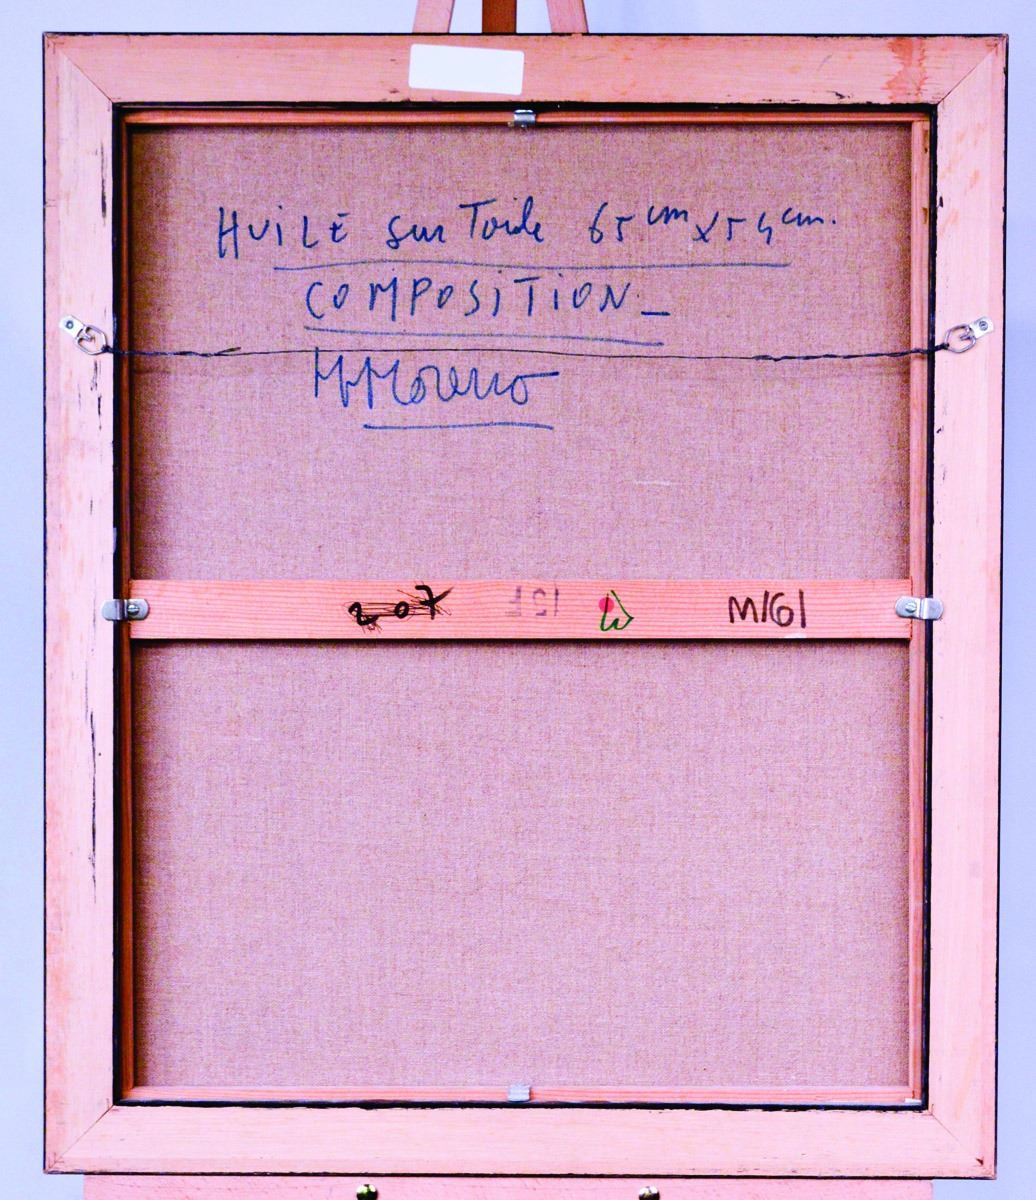 HUiLE sur Toile 65cm x 54cm.
COMPOSITION_
Moreno
207 M161